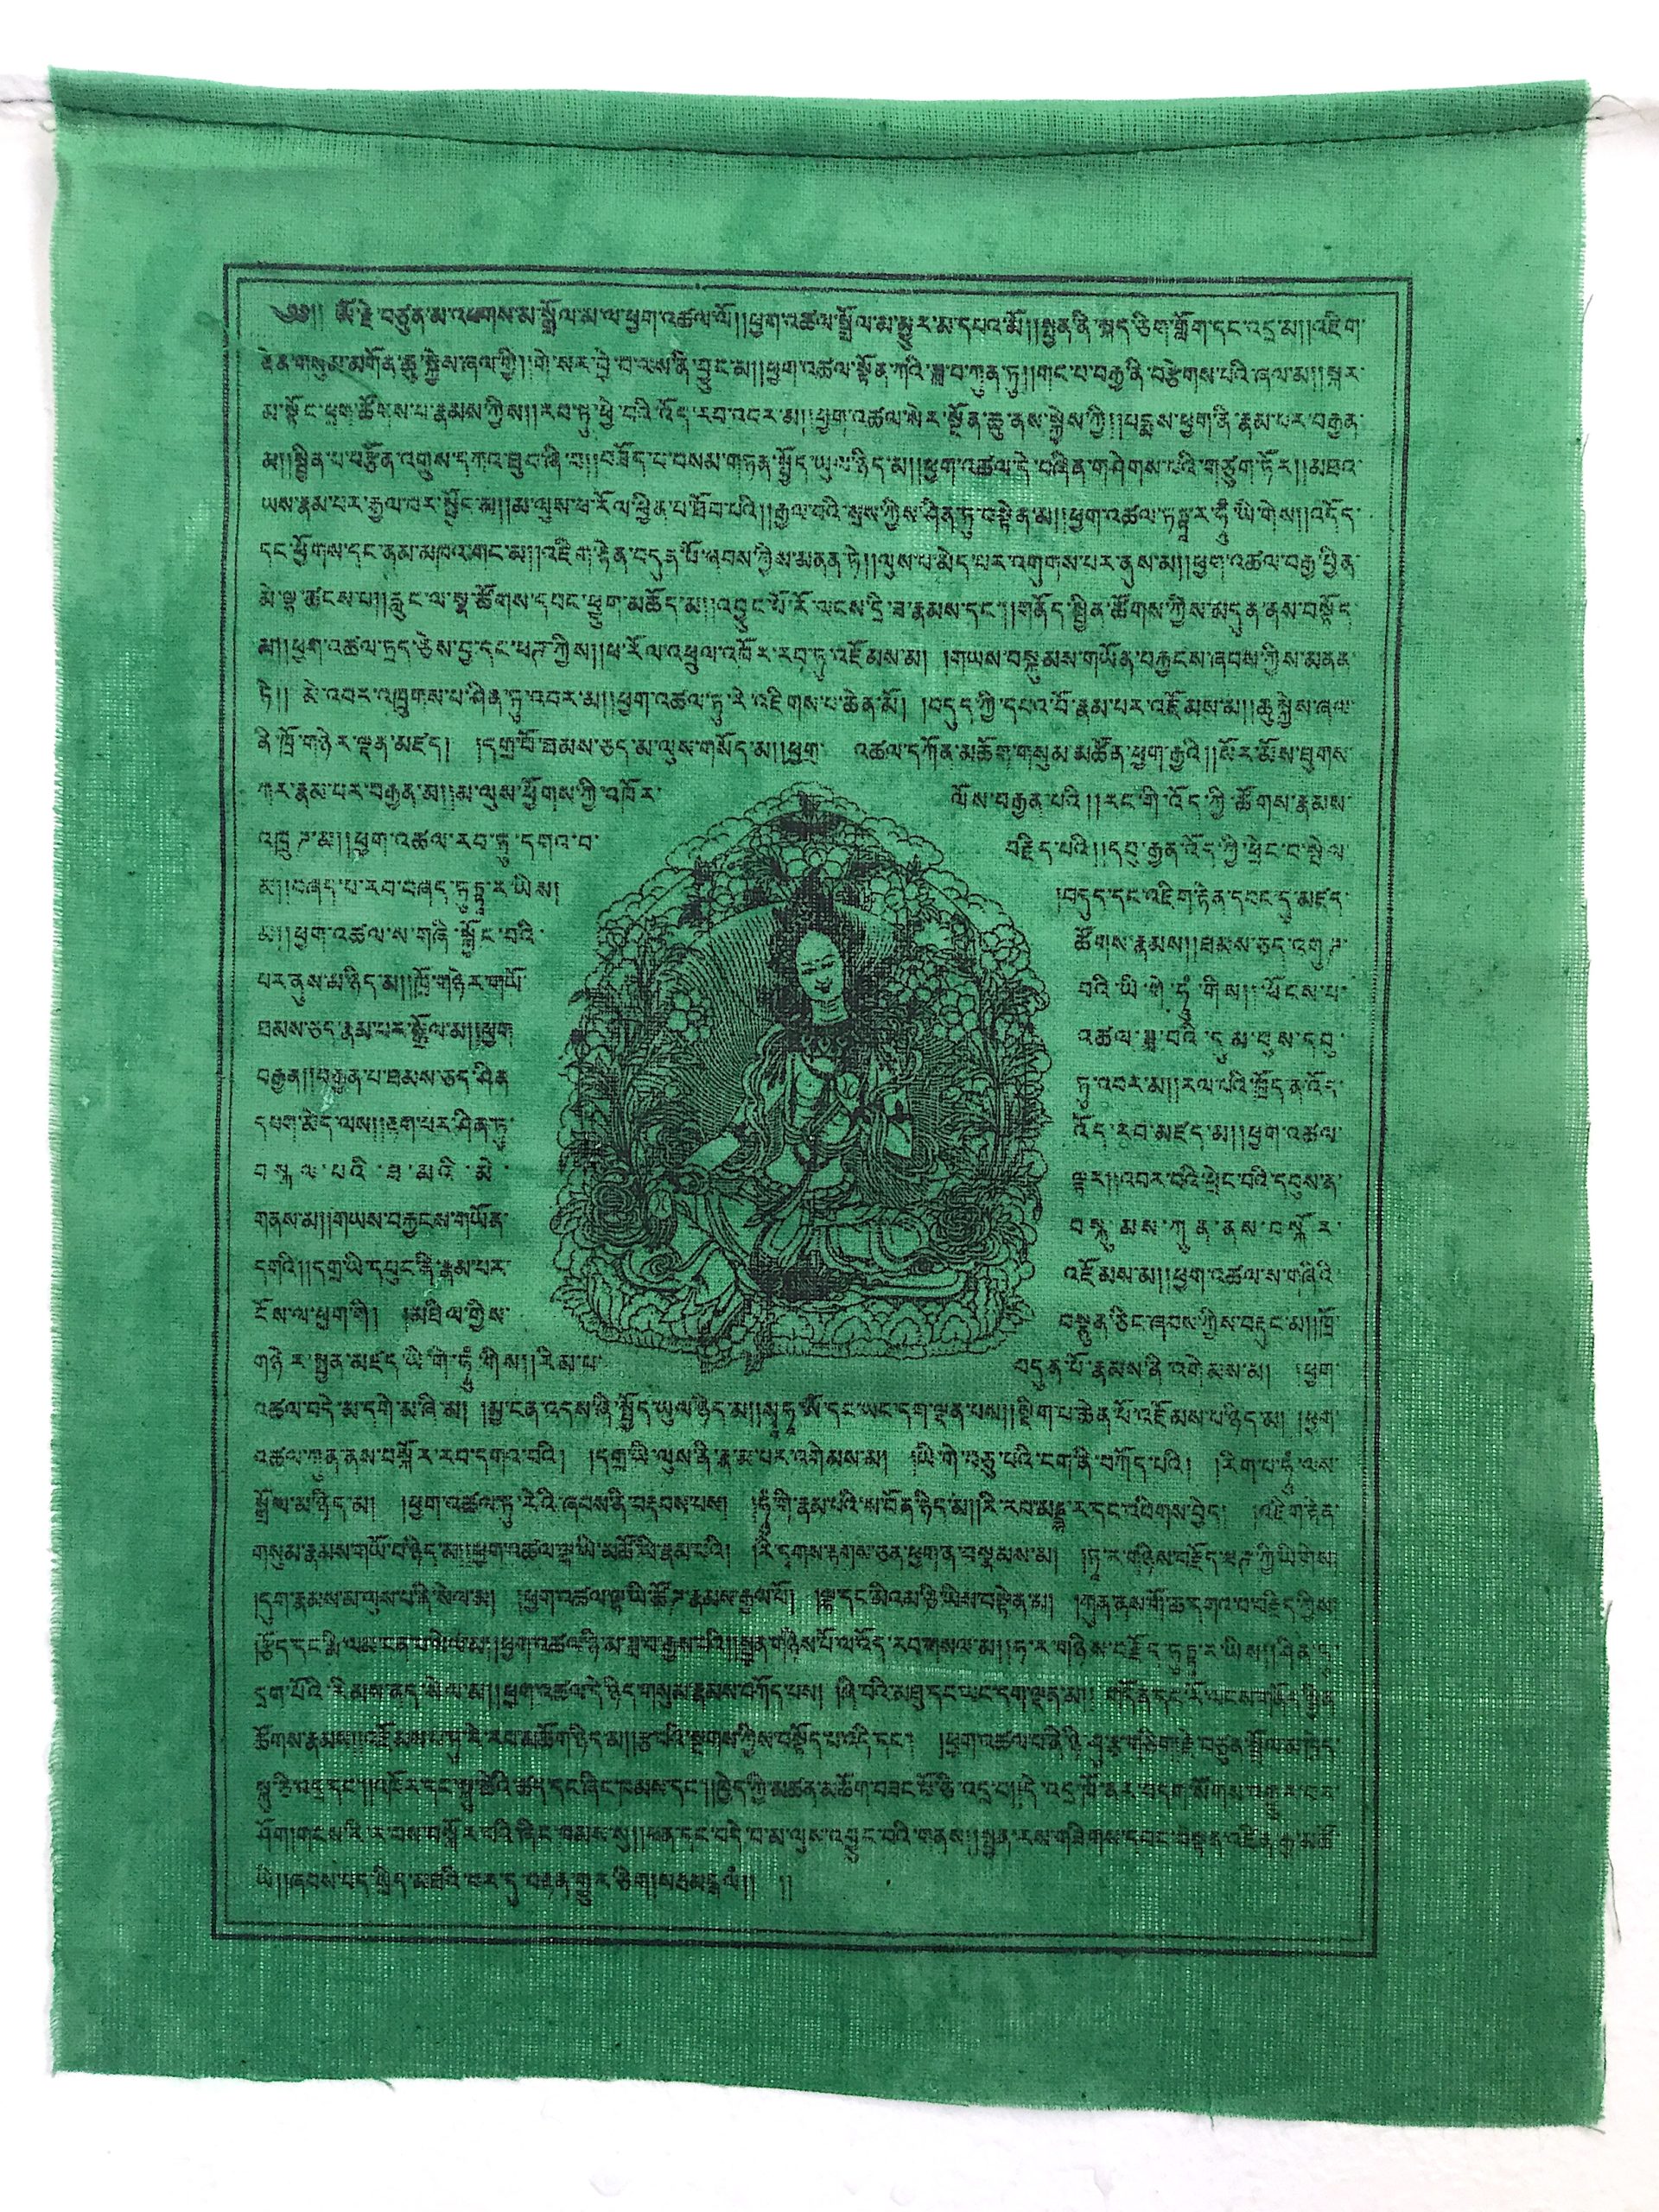 ༄༅།། ༀ་རྗེ་བཙུན་མ་འཕགས་མ་སྒྲོལ་མ་ལ་ཕྱག་འཚལ་ལོ།།ཕྱག་འཚལ་སྒྲོལ་མ་མྱུར་མ་དཔའ་མོ།།སྤྱན་ནི་སྐད་ཅིག་གློག་དང་འདྲ་མ།།འཇིག་
རྟེན་གསུམ་མགོན་ཆུ་སྐྱེས་ཞལ་གྱི།།གེ་སར་བྱེ་བ་ལས་ནི་བྱུང་མ།།ཕྱག་འཚལ་སྟོན་ཀའི་ཟླ་བ་ཀུན་ཏུ།།གང་བ་བརྒྱ་ནི་བརྩེགས་པའི་ཞལ་མ།།སྐར་
མ་སྟོང་ཕྲག་ཚོགས་པ་རྣམས་ཀྱིས།།རབ་ཏུ་ཕྱེ་བའི་འོད་རབ་འབར་མ།།ཕྱག་འཚལ་སེར་སྔོན་ཆུ་ནས་སྐྱེས་ཀྱི།།པདྨས་ཕྱག་ནི་རྣམ་པར་བརྒྱན་
མ།།སྦྱིན་པ་བརྩོན་འགྲུས་དཀའ་ཐུབ་ཞི་བ།།བཟོད་པ་བསམ་གཏན་སྤྱོད་ཡུལ་ཉིད་མ།།ཕྱག་འཚལ་དེ་བཞིན་གཤེགས་པའི་གཙུག་ཏོར།།མཐའ་
ཡས་རྣམ་པར་རྒྱལ་བར་སྤྱོད་མ།།མ་ལུས་ཕ་རོལ་ཕྱིན་པ་ཐོབ་པའི།།རྒྱལ་བའི་སྲས་ཀྱིས་ཤིན་ཏུ་བསྟེན་མ།།ཕྱག་འཚལ་ཏུཏྟཱར་ཧཱུྃ་ཡི་གེས།།འདོད་
དང་ཕྱོགས་དང་ནམ་མཁའ་གང་མ།།འཇིག་རྟེན་བདུན་པོ་ཞབས་ཀྱིས་མནན་ཏེ།།ལུས་པ་མེད་པར་འགུགས་པར་ནུས་མ།།ཕྱག་འཚལ་བརྒྱ་བྱིན་
མེ་ལྷ་ཚངས་པ།།རླུང་ལ་སྣ་ཚོགས་དབང་ཕྱུག་མཆོད་མ།།འབྱུང་པོ་རོ་ལངས་དྲི་ཟ་རྣམས་དང་།།གནོད་སྦྱིན་ཚོགས་ཀྱིས་མདུན་ནས་བསྟོད་
མ།།ཕྱག་འཚལ་ཏྲད་ཅེས་བྱ་དང་ཕཊ་ཀྱིས།།ཕ་རོལ་འཕྲུལ་འཁོར་རབ་ཏུ་འཇོམས་མ། །གཡས་བསྐུམས་གཡོན་བརྐྱངས་ཞབས་ཀྱིས་མནན་
ཏེ།། མེ་འབར་འཁྲུགས་པ་ཤིན་ཏུ་འབར་མ།།ཕྱག་འཚལ་ཏུ་རེ་འཇིགས་པ་ཆེན་མོ། །བདུད་ཀྱི་དཔའ་བོ་རྣམ་པར་འཇོམས་མ།།ཆུ་སྐྱེས་ཞལ་
ནི་ཁྲོ་གཉེར་ལྡན་མཛད། །དགྲ་བོ་ཐམས་ཅད་མ་ལུས་གསོད་མ།།ཕྱག་ འཚལ་དཀོན་མཆོག་གསུམ་མཚོན་ཕྱག་རྒྱའི།།སོར་མོས་ཐུགས་
ཀར་རྣམ་པར་བརྒྱན་མ།།མ་ལུས་ཕྱོགས་ཀྱི་འཁོར་ ལོས་བརྒྱན་པའི།།རང་གི་འོད་ཀྱི་ཚོགས་རྣམས་
འཁྲུཊ་མ།།ཕྱག་འཚལ་རབ་ཏུ་དགའ་བ་ བརྗིད་པའི།།དབུ་རྒྱན་འོད་ཀྱི་ཕྲེང་བ་སྤེལ་
མ།།བཞད་པ་རབ་བཞད་ཏུཏྟཱར་ཡིས། །བདུད་དང་འཇིག་རྟེན་དབང་དུ་མཛད་
མ།།ཕྱག་འཚལ་ས་གཞི་སྐྱོང་བའི་ ཚོགས་རྣམས།།ཐམས་ཅད་འགུཊ་
པར་ནུས་མ་ཉིད་མ།།ཁྲོ་གཉེར་གཡོ་ བའི་ཡི་གེ་ཧཱུྃ་གིས།།ཕོངས་པ་
ཐམས་ཅད་རྣམ་པར་སྒྲོལ་མ།།ཕྱག་ འཚལ་ཟླ་བའི་དུམ་བུས་དབུ་
བརྒྱན།།བརྒྱན་པ་ཐམས་ཅད་ཤིན་ ཏུ་འབར་མ།།རལ་པའི་ཁྲོད་ན་འོད་
དཔག་མེད་ལས།།རྟག་པར་ཤིན་ཏུ་ འོད་རབ་མཛད་མ།།ཕྱག་འཚལ་
བསྐལ་པའི་ཐ་མའི་མེ་ ལྟར།།འབར་བའི་ཕྲེང་བའི་དབུས་ན་
གནས་མ།།གཡས་བརྐྱངས་གཡོན་ བསྐུམས་ཀུན་ནས་བསྐོར་
དགའི།།དགྲ་ཡི་དཔུང་ནི་རྣམ་པར་ འཇོམས་མ།།ཕྱག་འཚལ་ས་གཞིའི་
ངོས་ལ་ཕྱག་གི། །མཐིལ་གྱིས་ བསྣུན་ཅིང་ཞབས་ཀྱིས་བརྡུང་མ།།ཁྲོ་
གཉེར་སྤྱན་མཛད་ཡི་གེ་ཧཱུྃ་གིས།།རིམ་པ་ བདུན་པོ་རྣམས་ནི་འགེམས་མ། །ཕྱག་
འཚལ་བདེ་མ་དགེ་མ་ཞི་མ། །མྱ་ངན་འདས་ཞི་སྤྱོད་ཡུལ་ཉིད་མ།།སྭཱཧཱ་ༀ་དང་ཡང་དག་ལྡན་པས།།སྡིག་པ་ཆེན་པོ་འཇོམས་པ་ཉིད་མ། །ཕྱག་
འཚལ་ཀུན་ནས་བསྐོར་རབ་དགའ་བའི། །དགྲ་ཡི་ལུས་ནི་རྣམ་པར་འགེམས་མ། །ཡི་གེ་བཅུ་པའི་ངག་ནི་བཀོད་པའི། །རིག་པ་ཧཱུྃ་ལས་
སྒྲོལ་མ་ཉིད་མ། །ཕྱག་འཚལ་ཏུ་རེའི་ཞབས་ནི་བརྡབས་པས། །ཧཱུྃ་གི་རྣམ་པའི་ས་བོན་ཉིད་མ།།རི་རབ་མནྡ་ར་དང་འབིགས་བྱེད། །འཇིག་རྟེན་
གསུམ་རྣམས་གཡོ་བ་ཉིད་མ།།ཕྱག་འཚལ་ལྷ་ཡི་མཚོ་ཡི་རྣམ་པའི། །རི་དྭགས་རྟགས་ཅན་ཕྱག་ན་བསྣམས་མ། །ཏཱ་ར་གཉིས་བརྗོད་ཕཊ་ཀྱི་ཡི་གེས།
།དུག་རྣམས་མ་ལུས་པ་ནི་སེལ་མ། །ཕྱག་འཚལ་ལྷ་ཡི་ཚོཊ་རྣམས་རྒྱལ་པོ། །ལྷ་དང་མིའམ་ཅི་ཡིས་བསྟེན་མ། །ཀུན་ནས་གོ་ཆ་དགའ་བ་བརྗིད་ཀྱིས་
།རྩོད་དང་རྨི་ལམ་ངན་པ་སེལ་མ།།ཕྱག་འཚལ་ཉི་མ་ཟླ་བ་རྒྱས་པའི།།སྤྱན་གཉིས་པོ་ལ་འོད་རབ་གསལ་མ།།ཏ་ར་གཉིས་བརྗོད་ཏུཏྟཱར་ཡིས།།ཤིན་ཏུ་
དྲག་པོའི་རིམས་ནད་སེལ་མ།།ཕྱག་འཚལ་དེ་ཉིད་གསུམ་རྣམས་བཀོད་པས། །ཞི་བའི་མཐུ་དང་ཡང་དག་ལྡན་མ།། གདོན་དང་རོ་ལངས་གནོད་སྦྱིན་
ཚོགས་རྣམས།།འཇོམས་པ་ཏུ་རེ་རབ་མཆོག་ཉིད་མ།།རྩ་བའི་སྔགས་ཀྱིས་བསྟོད་པ་འདི་དང་། །ཕྱག་འཚལ་བ་ནི་ཉི་ཤུ་རྩ་གཅིག།རྗེ་བཙུན་སྒྲོལ་མ་ཁྱེད་
སྐུ་ཅི་འདྲ་དང་།།འཁོར་དང་སྐུ་ཚེའི་ཚད་དང་ཞིང་ཁམས་དང་།།ཁྱེད་ཀྱི་མཚན་མཆོག་བཟང་པོ་ཅི་འདྲ་བ།།དེ་འདྲ་ཁོ་ནར་བདག་སོགས་འགྱུར་བར་
ཤོག།གངས་རི་ར་བས་བསྐོར་བའི་ཞིང་ཁམས་སུ།།ཕན་དང་བདེ་བ་མ་ལུས་འབྱུང་བའི་གནས།།སྤྱན་རས་གཟིགས་དབང་བསྟན་འཛིན་རྒྱ་མཚོ་
ཡི།།ཞབས་པད་སྲིད་མཐའི་བར་དུ་བརྟན་གྱུར་ཅིག།སརྦམངྒལཾ།། །།